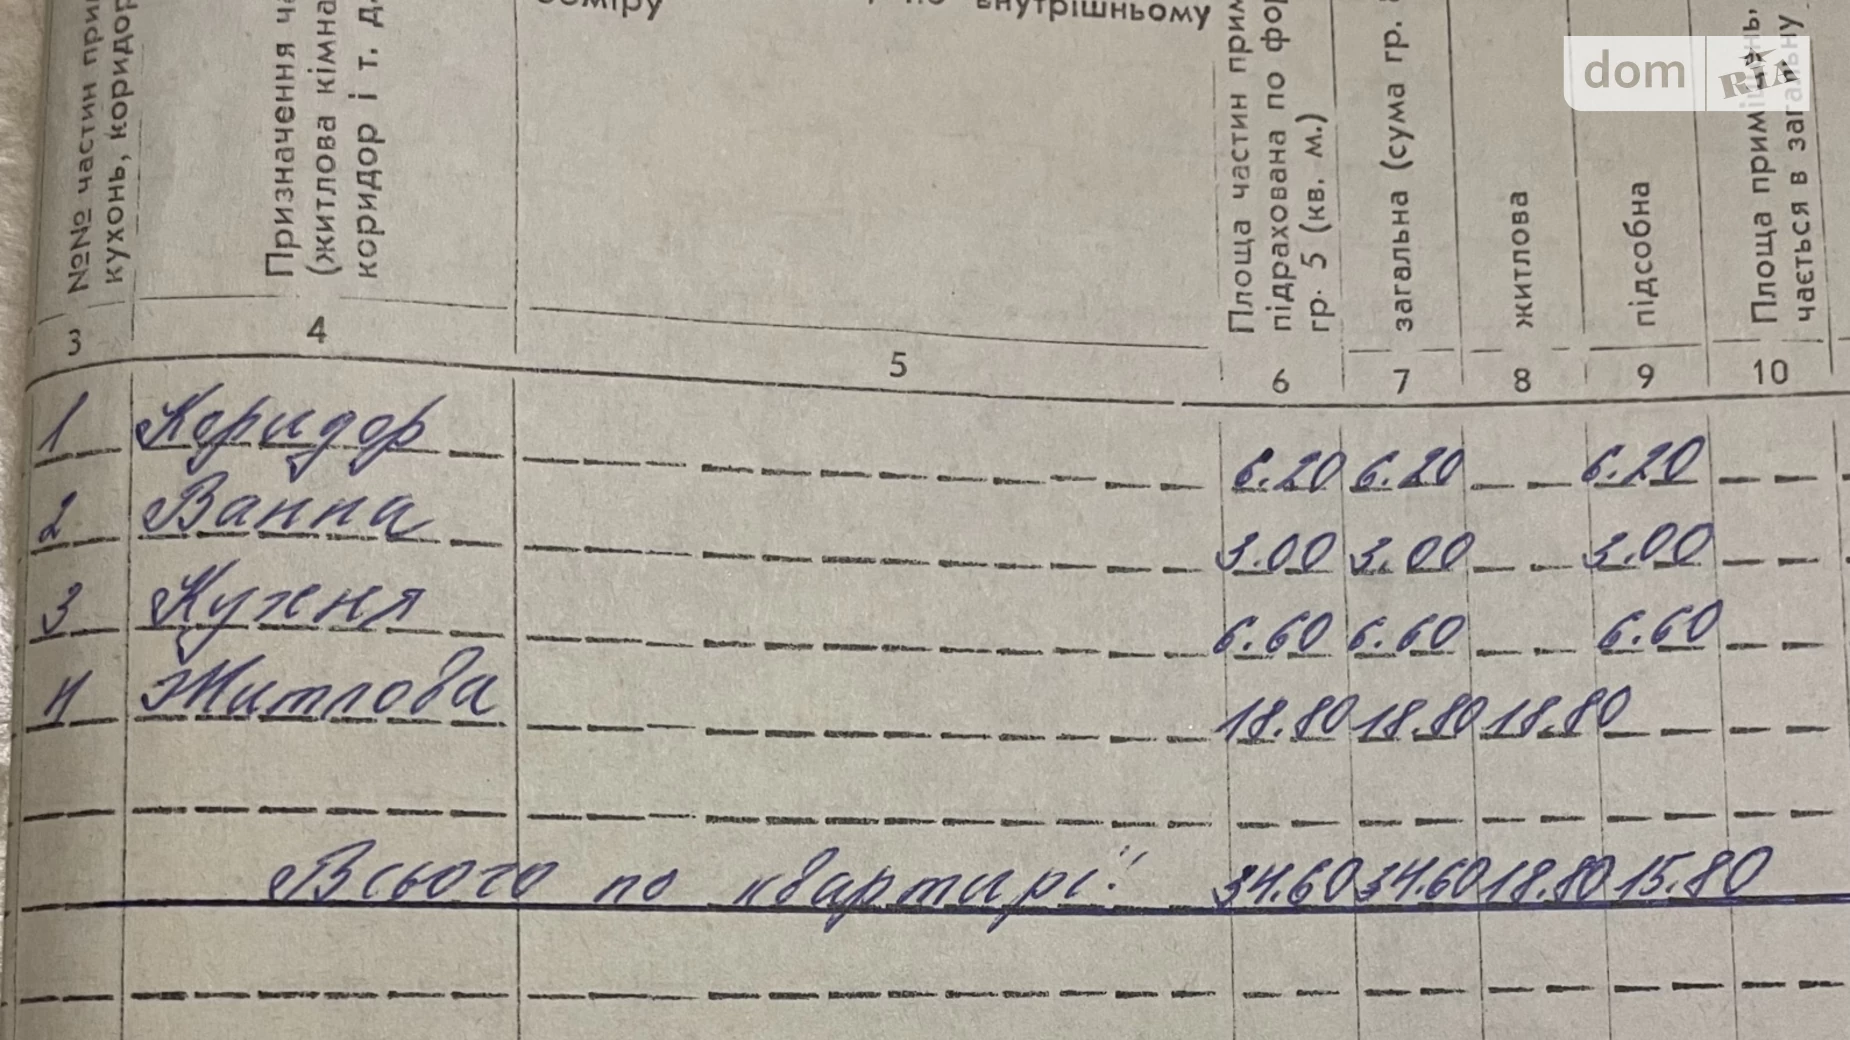 №№ частин
кухонь,
Призначення
(житлова
коридор і т.
внутрішньому
Площа частин
підрахована по
гр. 5 (кв. м.)
загальна (сума гр.
житлова
підсобна
Площа
чається в
dom RIA
3 4 5 6 7 8 9 10
1 Коридор 6.20 6.20 6.20
2 Ванна 3.00 3.00 3.00
3 Кухня 6.60 6.60 6.60
4 Житлова 18.80 18.80 18.80
Всього по квартирі: 34.60 34.60 18.80 15.80